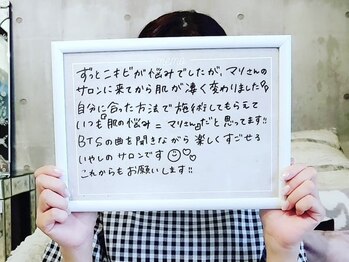 ずっとニキビが悩みでしたが、マリさんの
サロンに来てから肌が凄く変わりました!!
自分に合った方法で施術してもらえて
いつも『肌の悩み=マリさん』だと思ってます!!
BTSの曲を聞きながら 楽しくすごせる
いやしのサロンです
これからもお願いします!!